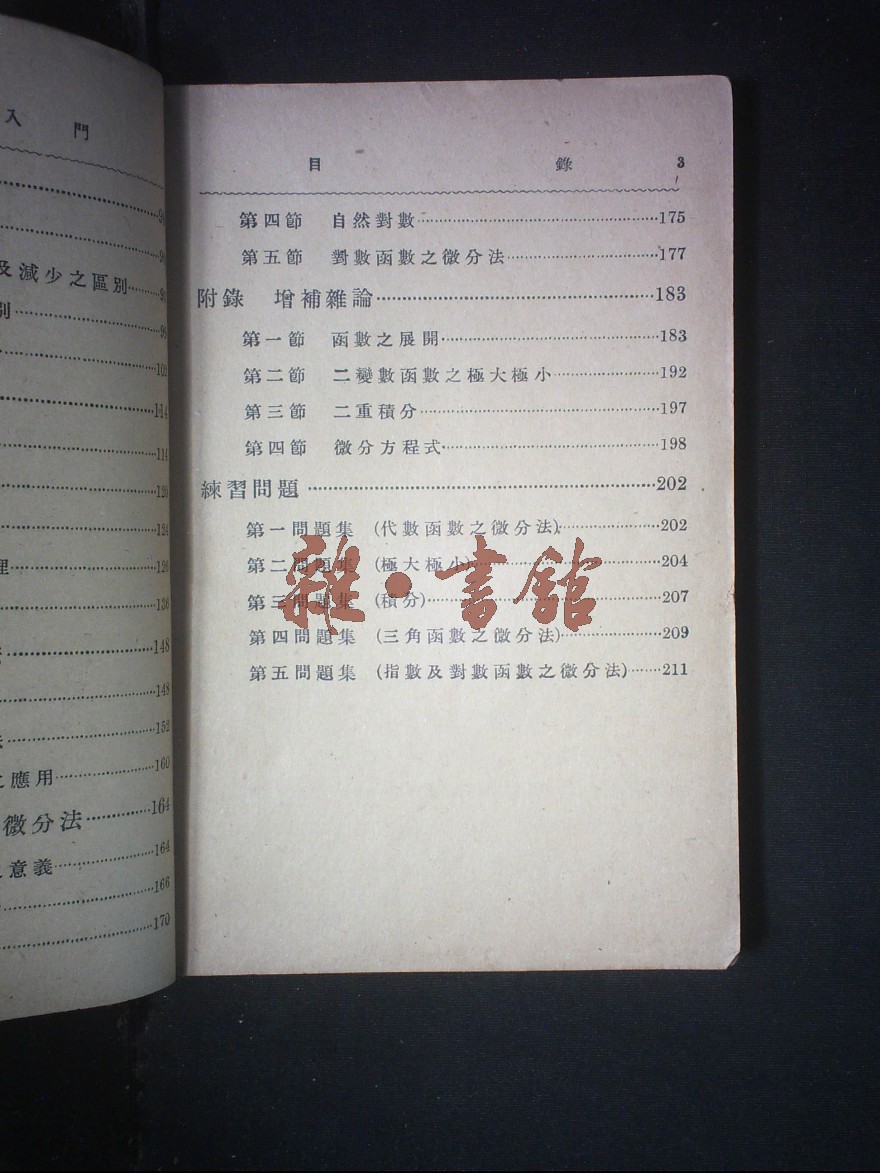 入 門
90
90
及減少之區別 91
別 98
102
114
114
120
124
理 126
136
148
148
152
之應用 160
微分法 164
意義 164
166
170
目 錄 3
第四節 自然對數 175
第五節 對數函數之微分法 177
附錄 增補雜論 183
第一節 函數之展開 183
第二節 二變數函數之極大極小 192
第三節 二重積分 197
第四節 微分方程式 198
練習問題 202
第一問題集 (代數函數之微分法) 202
第二問題集 (極大極小) 204
第三問題集 (積分) 207
第四問題集 (三角函數之微分法) 209
第五問題集 (指數及對數函數之微分法) 211
雜·書館